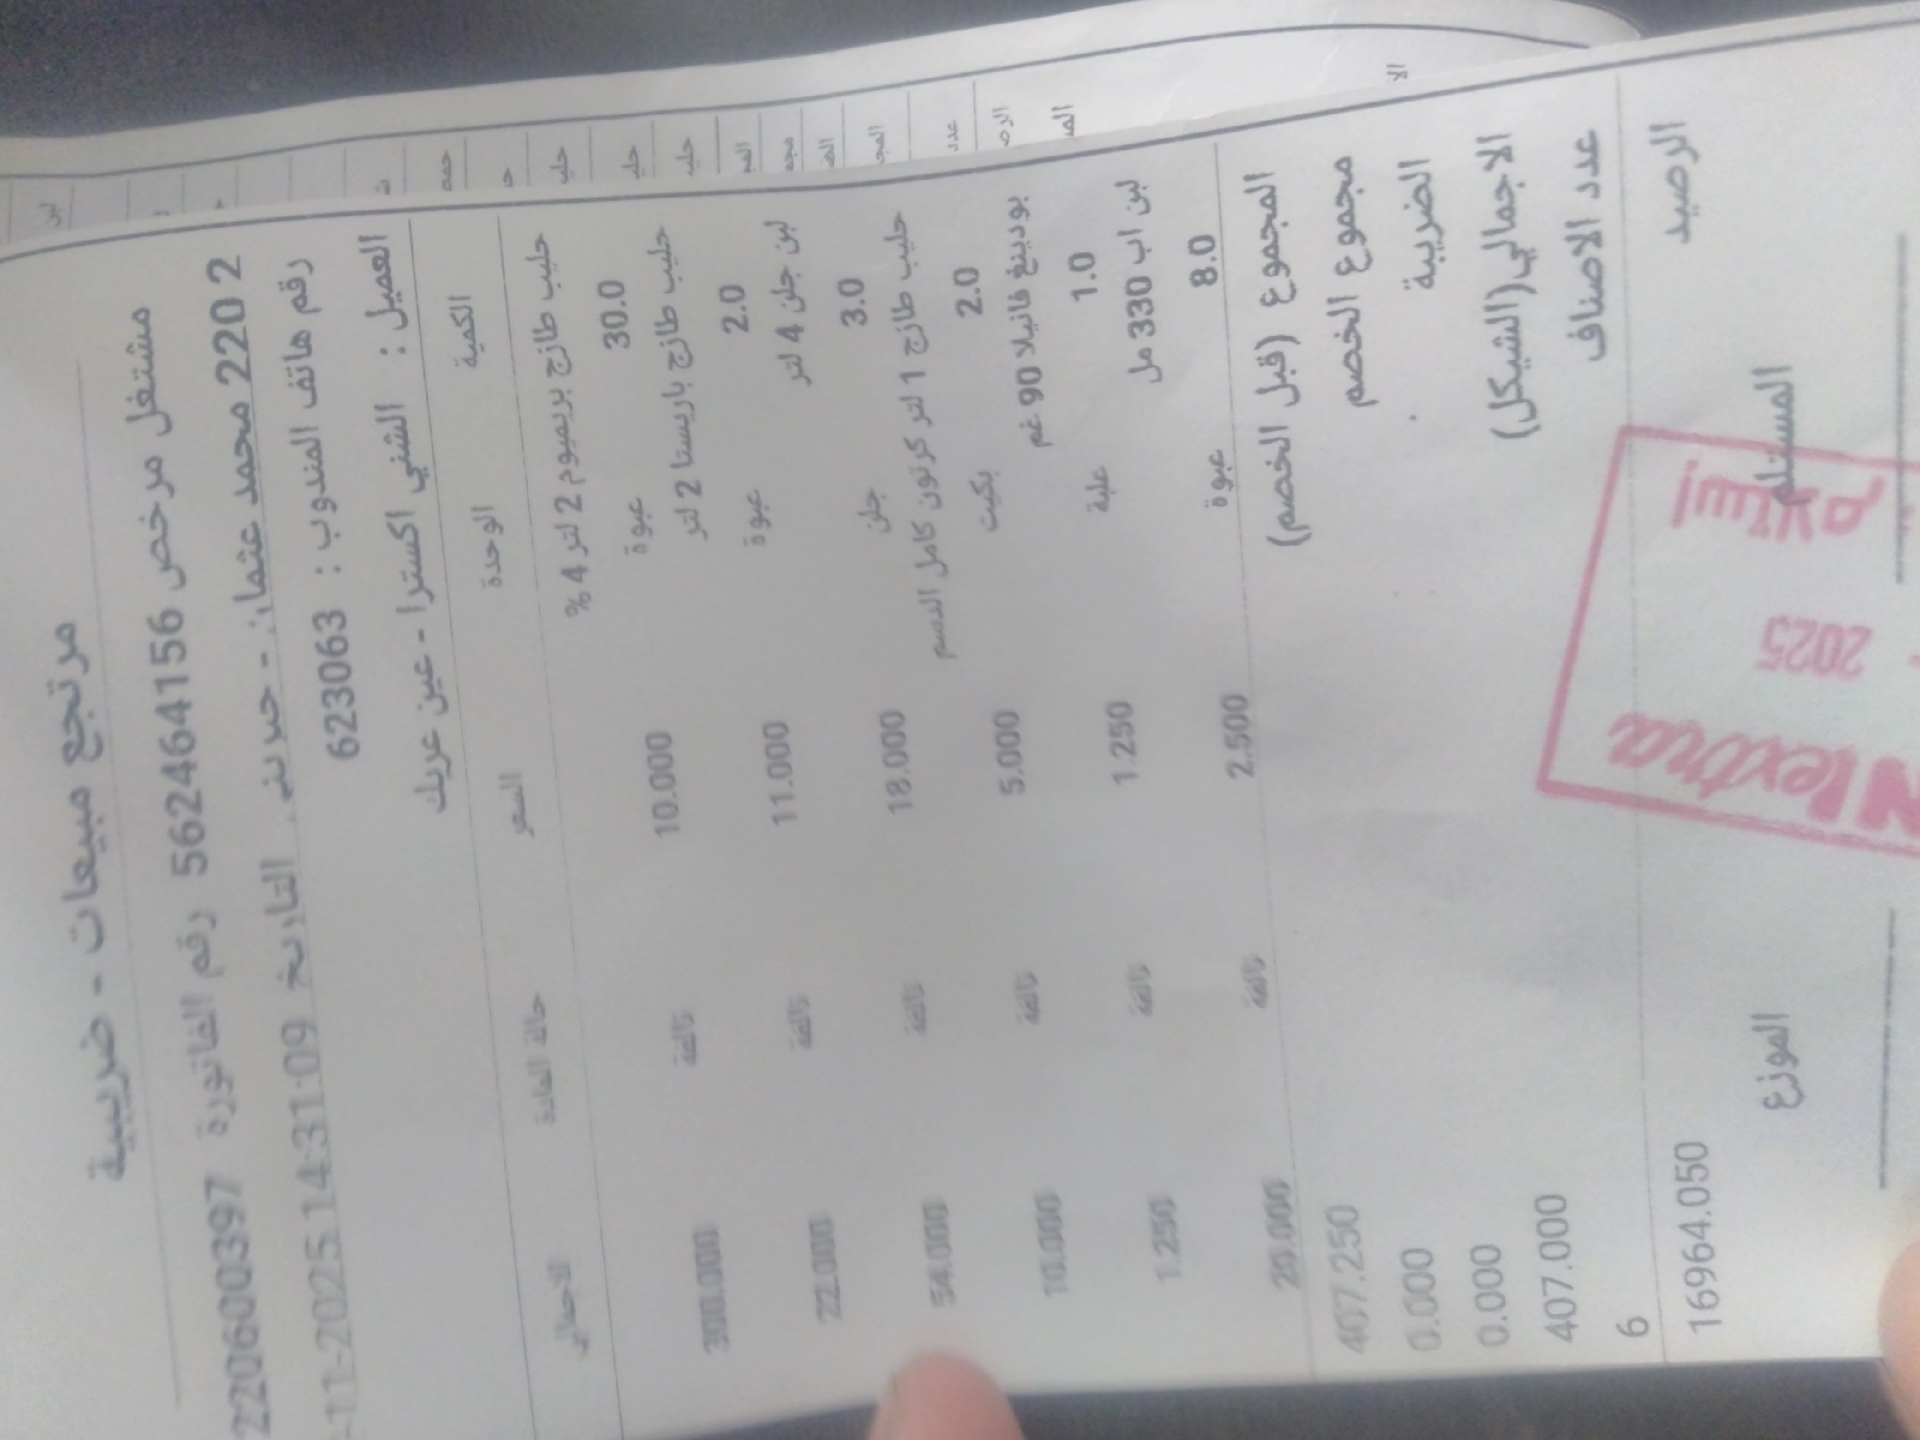 مرتجع مبيعات - ضريبية
مشتغل مرخص 562464156 رقم الفاتورة 220600397
2 220 محمد عثمان - التاريخ 11-2025 14:31:09-
رقم هاتف المندوب : 623063
العميل : الشني اكسترا - عين عريك
الكمية الوحدة السعر حالة المادة الاجمالي
حليب طازج بريميوم 2 لتر 4 %
30.0 عبوة 10.000 تالفة 300.000
حليب طازج باريستا 2 لتر
2.0 عبوة 11.000 تالفة 22.000
لبن جلن 4 لتر
3.0 جلن 18.000 تالفة 54.000
حليب طازج 1 لتر كرتون كامل الدسم
2.0 بكيت 5.000 تالفة 10.000
بودينغ فانيلا 90 غم
1.0 علبة 1.250 تالفة 1.250
لبن اب 330 مل
8.0 عبوة 2.500 تالفة 20.000
المجموع (قبل الخصم) 407.250
مجموع الخصم 0.000
الضريبة 0.000
الاجمالي(الشيكل) 407.000
عدد الاصناف 6
الرصيد 16964.050
المستلم الموزع
2025
extra